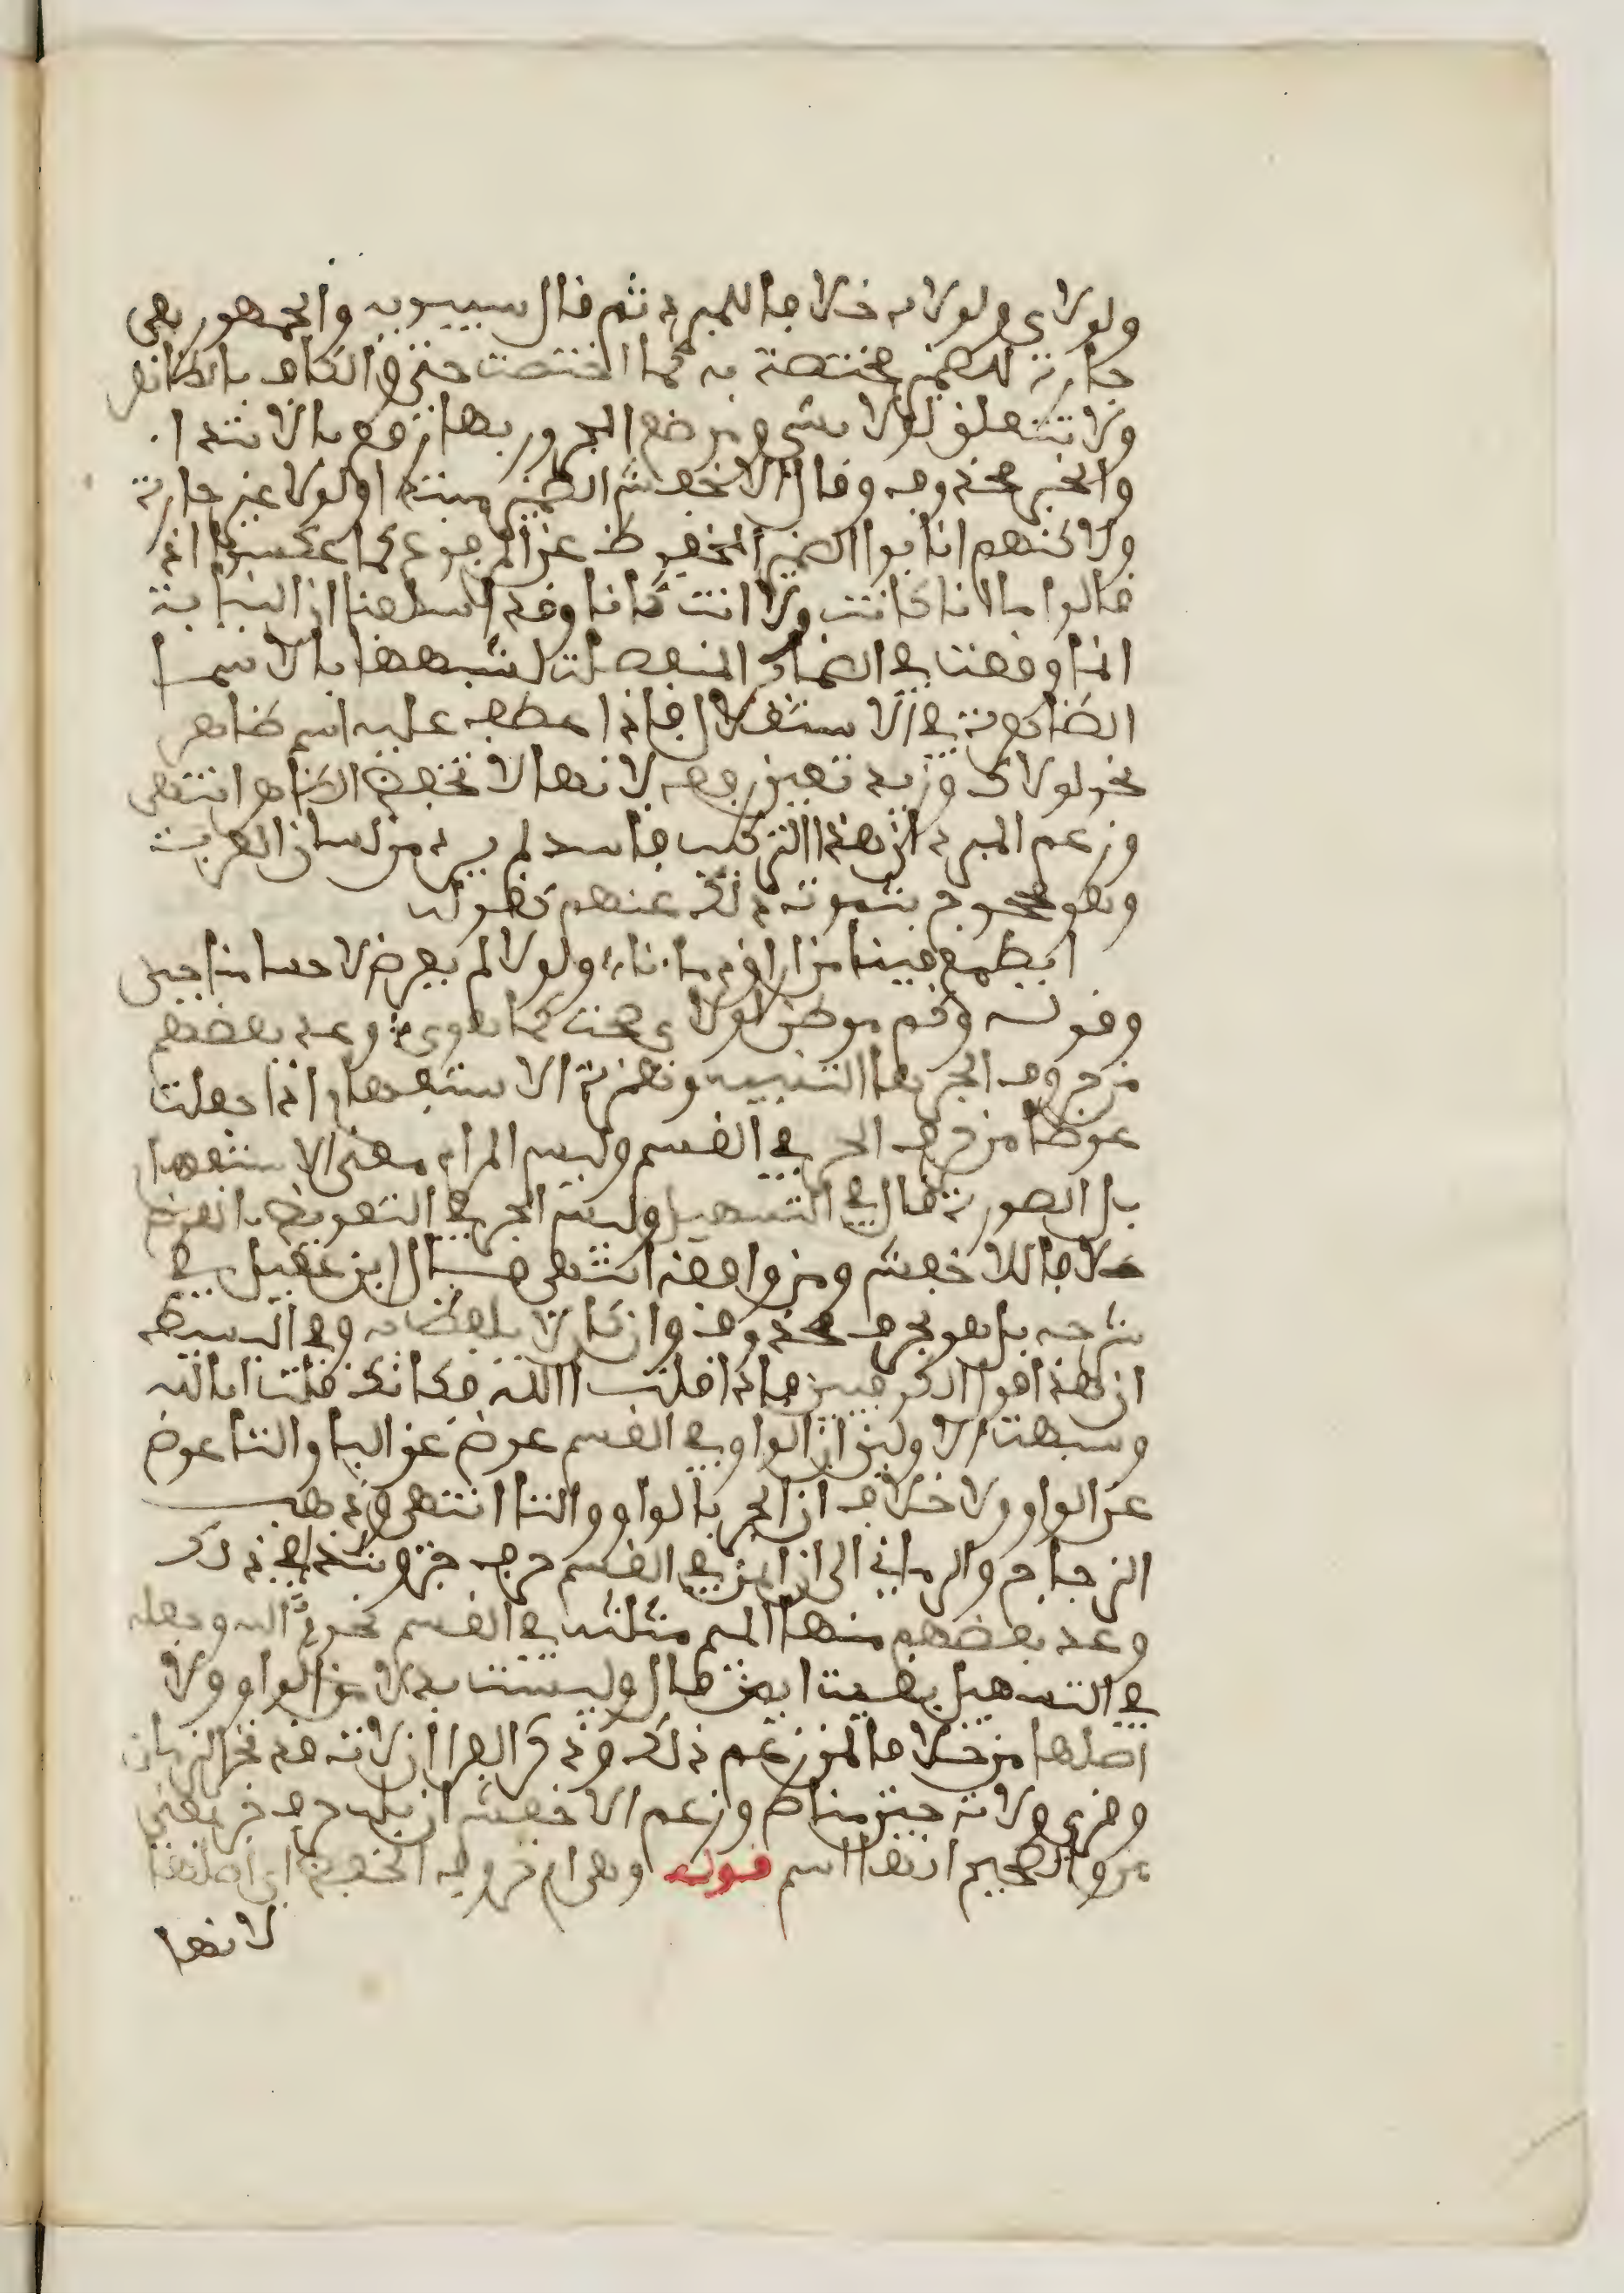 ولولاي ولولاه خلافا للمبرد ثم قال سيبويه والجمهور هي
جارة للضمير مختصة به كما اختصت حتى والكاف بالظاهر
ولا تتعلق لولا بشيء وموضع المجرور بها رفع بالابتدا
والخبر محذوف وقال الاخفش الضمير مبتدا ولولا غير جارة
ولاكنهم انابوا الضمير المخفوض عن المرفوع كما عكسوا اذ
قالوا ما انا كانت ولا انت كانا وقد اسلفنا ان النيابة
انما وقعت في الضمائر المنفصلة لشبهها بالاسما
الظاهرة في الاستقلال فاذا عطف عليه اسم ظاهر
نحو لولاك وزيد تعين رفعه لانها لا تخفض الظاهر انتهى
وزعم المبرد ان هذا التركيب فاسد لم يرد من لسان العرب
وهو محجوج بثبوت ذلك عنهم كقوله
ايطمع فينا من اراق دماءنا ولولاك لم يعرض لاحسابنا حسن
وقوله وكم موطن لولاي طحت كما هوى وعد بعضهم
من حروف الجر ها التنبيه وهمزة الاستفهام اذا جعلت
عوضا من حرف الجر في القسم وليس المراد معنى الاستفهام
بل الصورة قال في التسهيل وليس الجر في التعويض بالعوض
خلافا للاخفش ومن وافقه انتهى قال ابن عقيل في
شرحه بل هو بحرف محذوف وان كان لا يلفظ به وفي البسيط
ان هذا قول الكوفيين فاذا قلت االله فكانك قلت ابالله
وشبهت الاولين ان الواو في القسم عوض عن البا والتا عوض
عن الواو ولا خلاف ان الجر بالواو والتا انتهى وذهب
الزجاج والرماني الى ان ايمن في القسم حرف جر وشذا في ذلك
وعد بعضهم منها الميم مثلثة في القسم نحو م الله وجعله
في التسهيل بقية ايمن قال وليست بدلا من الواو ولا
اصلها من خلافا لمن زعم ذلك وذكر الفرا ان لات قد تجر الزمان
وقرئ ولات حين مناص وزعم الاخفش ان بله حرف جر بمعنى
من والصحيح انها اسم قوله وهي ام حروف الخفض اي اصلها
لانها